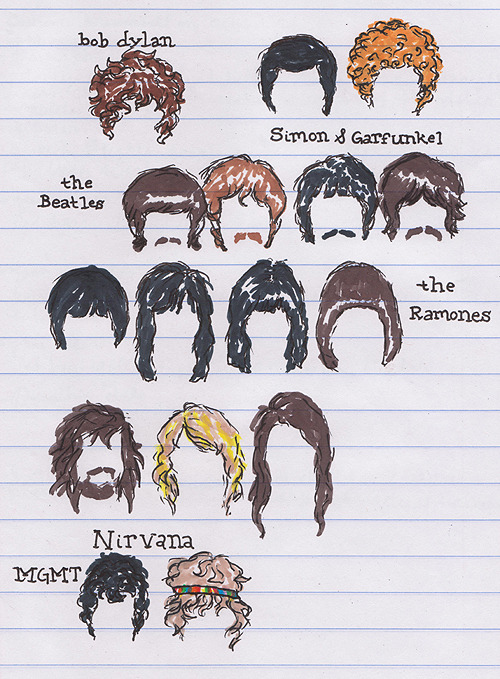 bob dylan
Simon & Garfunkel
the
Beatles
the
Ramones
Nirvana
MGMT